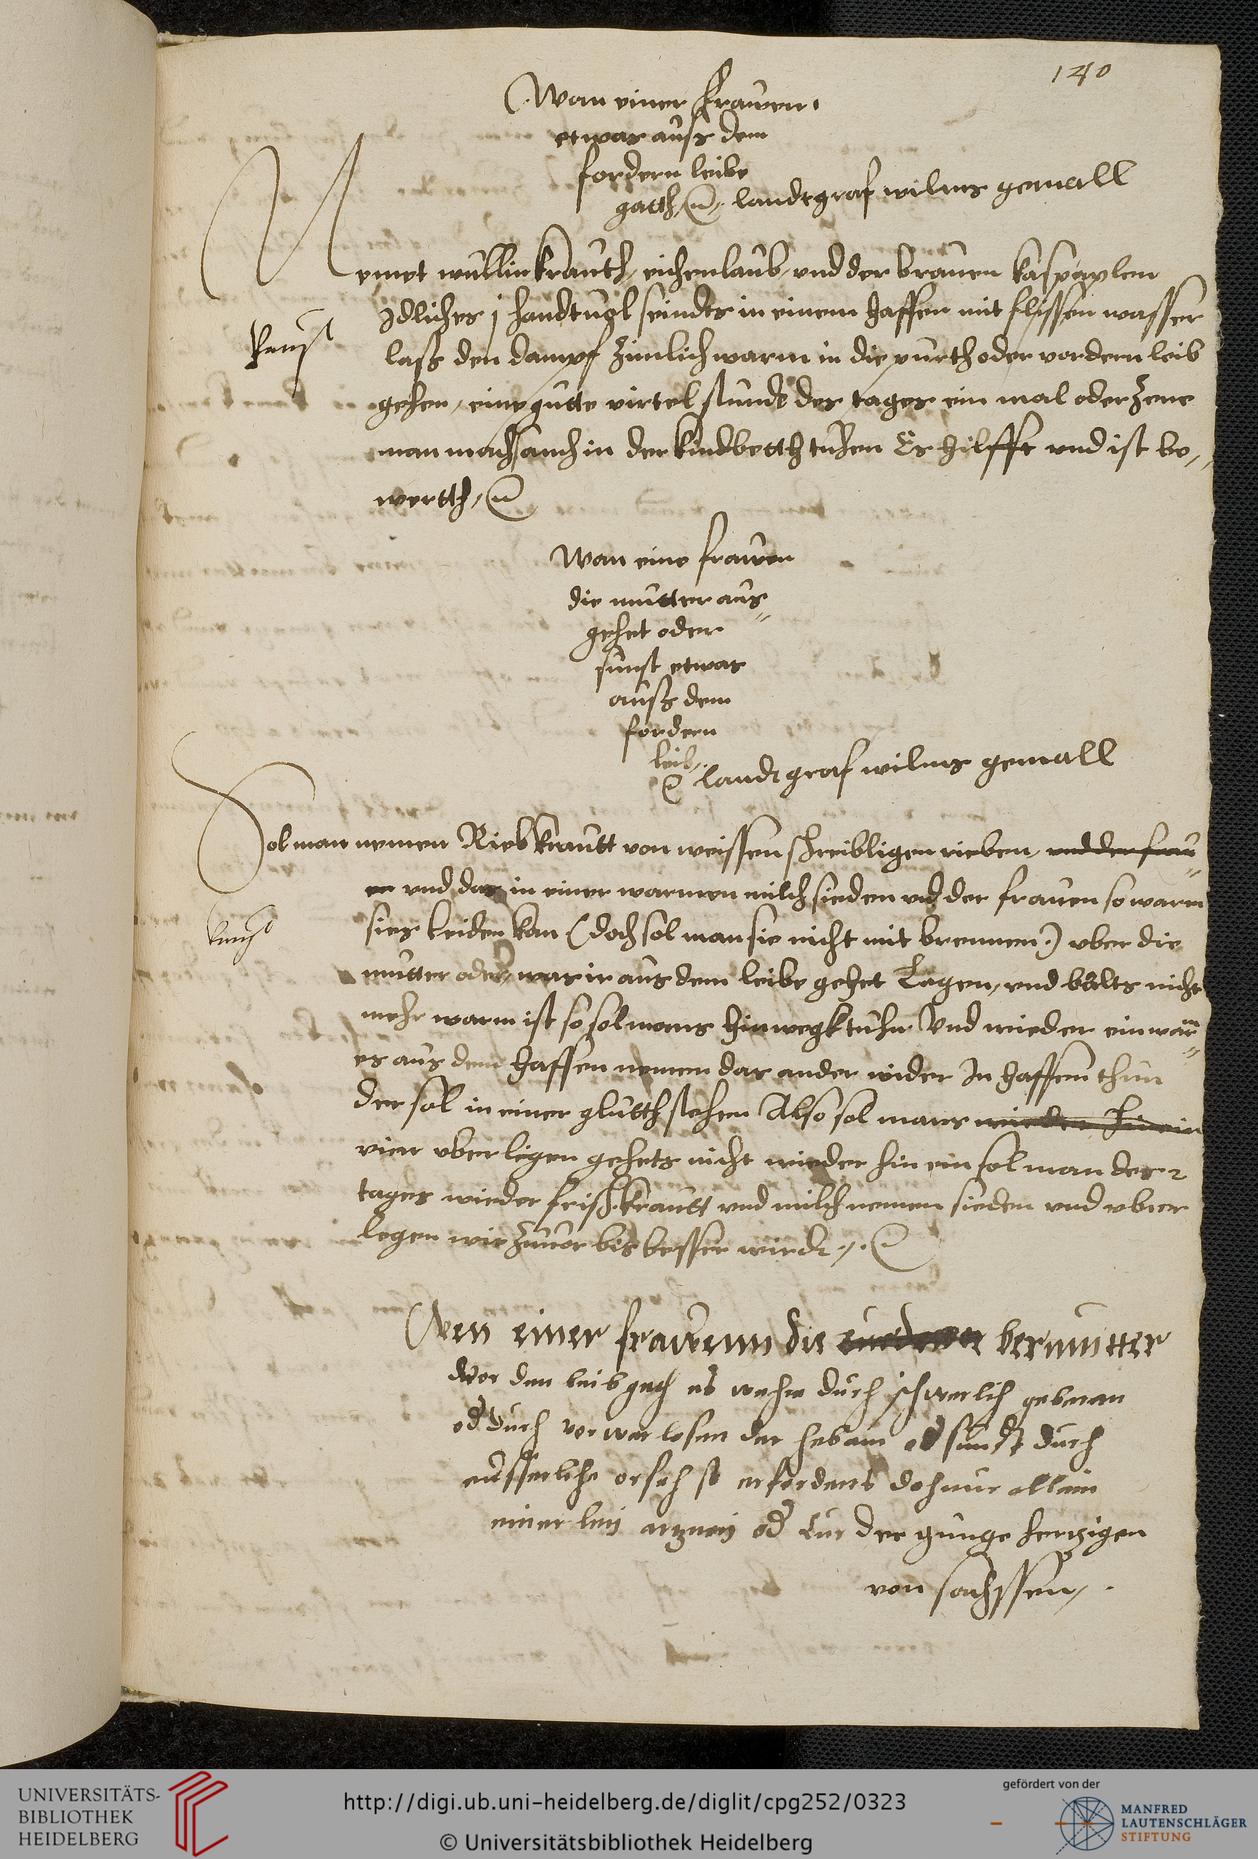 140
Wan einer frawen
etwas auss dem
fordern leibe
gatth landtgraf wilms gemall
Nemet wullinkrauth, eichenlaub, und der braunen
Idliches j handtugl seindts in einem haffen mit flissen wasser
lass den dampf zimlich warm in die purth oder vordern leib
gehen, eine gutte virtel stunde des tages ein mal oder zene
man machs auch in der kindbetth tuhen Es hilfft und ist be,,
wertth,
kunst
Wan eine frawen
die mutter aus,,
gehet oder
sunst etwas
auss dem
fordern
leib,
landtgraf wilms gemall
Sol man nemen Riebkrautt von weissen rieben, und der frau,,
en und das in einer warmen milch sieden und der frauen so warm
sies leiden kan (doch sol man sie nicht mit brennen) uber die
kunst
mutter oder was ir aus dem leibe gehet Legen, und balts nicht
mehr warm ist so sol mans hinwegk tuhn Und wieder ein war,,
es aus dem haffen nemen das ander wider In haffen thun
der sol in einer glutth stehen Also sol mans wieder hinein
vier uber legen gehets nicht wieder hin ein sol man des 2
tages wieder frisch krautt und milch nemen sieden und uber
legen wie zuvor bis besser wirdt
Wen einer frawenn die bermutter
vor den leib geth es wehre durch schwerlich geberen
od durch verwarlosen der hebam od sunst durch
eusserliche orsach so erforderts
einerlei artznei od der herzigen
von sachssen,
UNIVERSITÄTS-
BIBLIOTHEK
HEIDELBERG
http://digi.ub.uni-heidelberg.de/diglit/cpg252/0323
© Universitätsbibliothek Heidelberg
gefördert von der
MANFRED
LAUTENSCHLÄGER
STIFTUNG